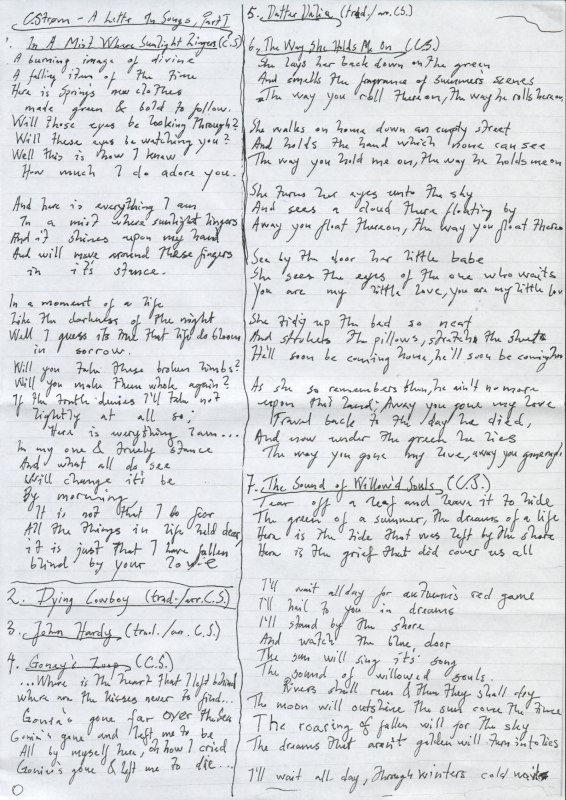 C.Strøm - A Little In Songs, Part I
1. In A Mist Where Sunlight Lingers (C.S)
A burning image of divine
A falling item of the time
Here is Springs new clothes
made green & bold to follow.
Will those eyes be looking through?
Will these eyes be watching you?
Well this is how I know
How much I do adore you.
And here is everything I am
In a mist where sunlight lingers
And it shines upon my hand
And will move around these fingers
in it's stance.
In a moment of a life
Like the darkness of the night
Well I guess its true that life do bloom
in sorrow.
Will you take these broken limbs?
Will you make them whole again?
If the truth denies I'll take not
lightly at all so;
Here is everything I am...
In my one & truly stance
And what all do see
Will change it's be
By morning
It is not that I do fear
All the things in life held dear,
it is just that I have fallen
blind by your love
2. Dying Cowboy (trad./arr. C.S.)
3. John Hardy (trad./arr. C.S.)
4. (C.S.)
...Where is the heart that I left behind
where are the kisses never to find...
gone far over the sea
gone and left me to be
All by myself here, oh how I cried
gone & left me to die...
5. (trad./arr. C.S.)
6. The Way She Holds Me On (C.S.)
She lays her back down on the green
And smells the fragrance of summers scenes
The way you roll thereon, the way he rolls hereon
She walks on home down an empty street
And holds the hand which none can see
The way you hold me on, the way he holds me on
She turns her eyes unto the sky
And sees a cloud there floating by
Away you float thereon, the way you float thereo
Sea by the door her little babe
She sees the eyes of the one who waits
You are my little love, you are my little lov
She tidy up the bed so neat
And strokes the pillows, stretch the sheets
He'll soon be coming home, he'll soon be coming hom
As she so remembers then, he ain't no more
upon this land; Away you gone my love
Travel back to the day he died,
And now under the green he lies
The way you gone my love, away you gone my l
7. The Sound of Willow'd Souls (C.S.)
Tear off a leaf and leave it to hide
The green of a summer, the dreams of a life
Here is the tide that was left by the shore
Here is the grief that did cover us all
I'll wait all day for autumn's red game
I'll hail to you in dreams
I'll stand by the shore
And watch the blue door
The sun will sing it's song
The sound of willowed souls.
Rivers shall run & then they shall dry
The moon will outshine the sun come the time
The roaring of fallen will for the sky
The dreams that aren't golden will turn into lies
I'll wait all day, through winters cold